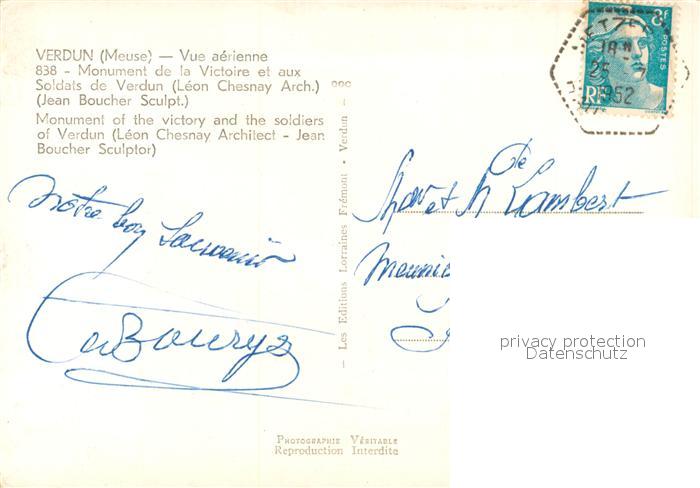 VERDUN (Meuse) — Vue aérienne
838 - Monument de la Victoire et aux
Soldats de Verdun (Léon Chesnay Arch.)
(Jean Boucher Sculpt.)
Monument of the victory and the soldiers
of Verdun (Léon Chesnay Architect - Jean
Boucher Sculptor)
Notre bon Souvenir
— Les Editions Lorraines Frémont - Verdun —
PHOTOGRAPHIE VÉRITABLE
Reproduction Interdite
8F
POSTES
RF
25
1952
et Lambert
privacy protection
Datenschutz